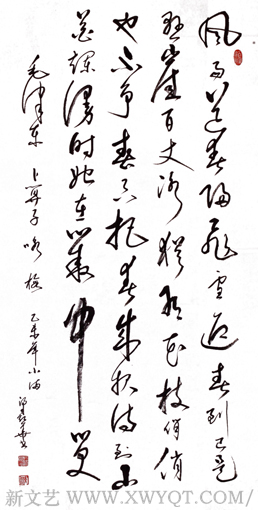 风雨送春归飞雪迎春到已是
悬崖百丈冰犹有花枝俏俏
也不争春只把春来报待到山
花烂漫时她在丛中笑
毛泽东 卜算子 咏梅 乙未年小满
新文艺 /WWW.XWYQT.COM/